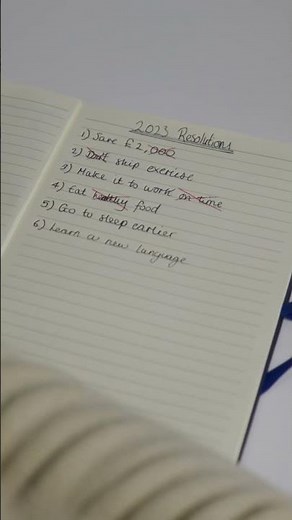 2023 Resolutions
1) Save £2,000
2) Don't skip exercise
3) Make it to work on time
4) Eat healthy food
5) Go to sleep earlier
6) Learn a new language